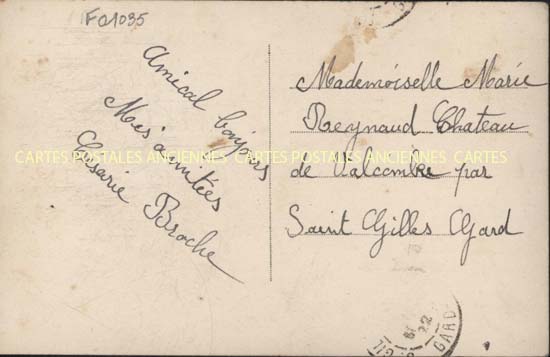 FO1035
Amical bonjour
Mes amitiés
Césarie Broche
Mademoiselle Marie
Reynaud Chateau
de Valcombe par
Saint Gilles Gard
CARTES POSTALES ANCIENNES CARTES POSTALES ANCIENNES CARTES
GARD